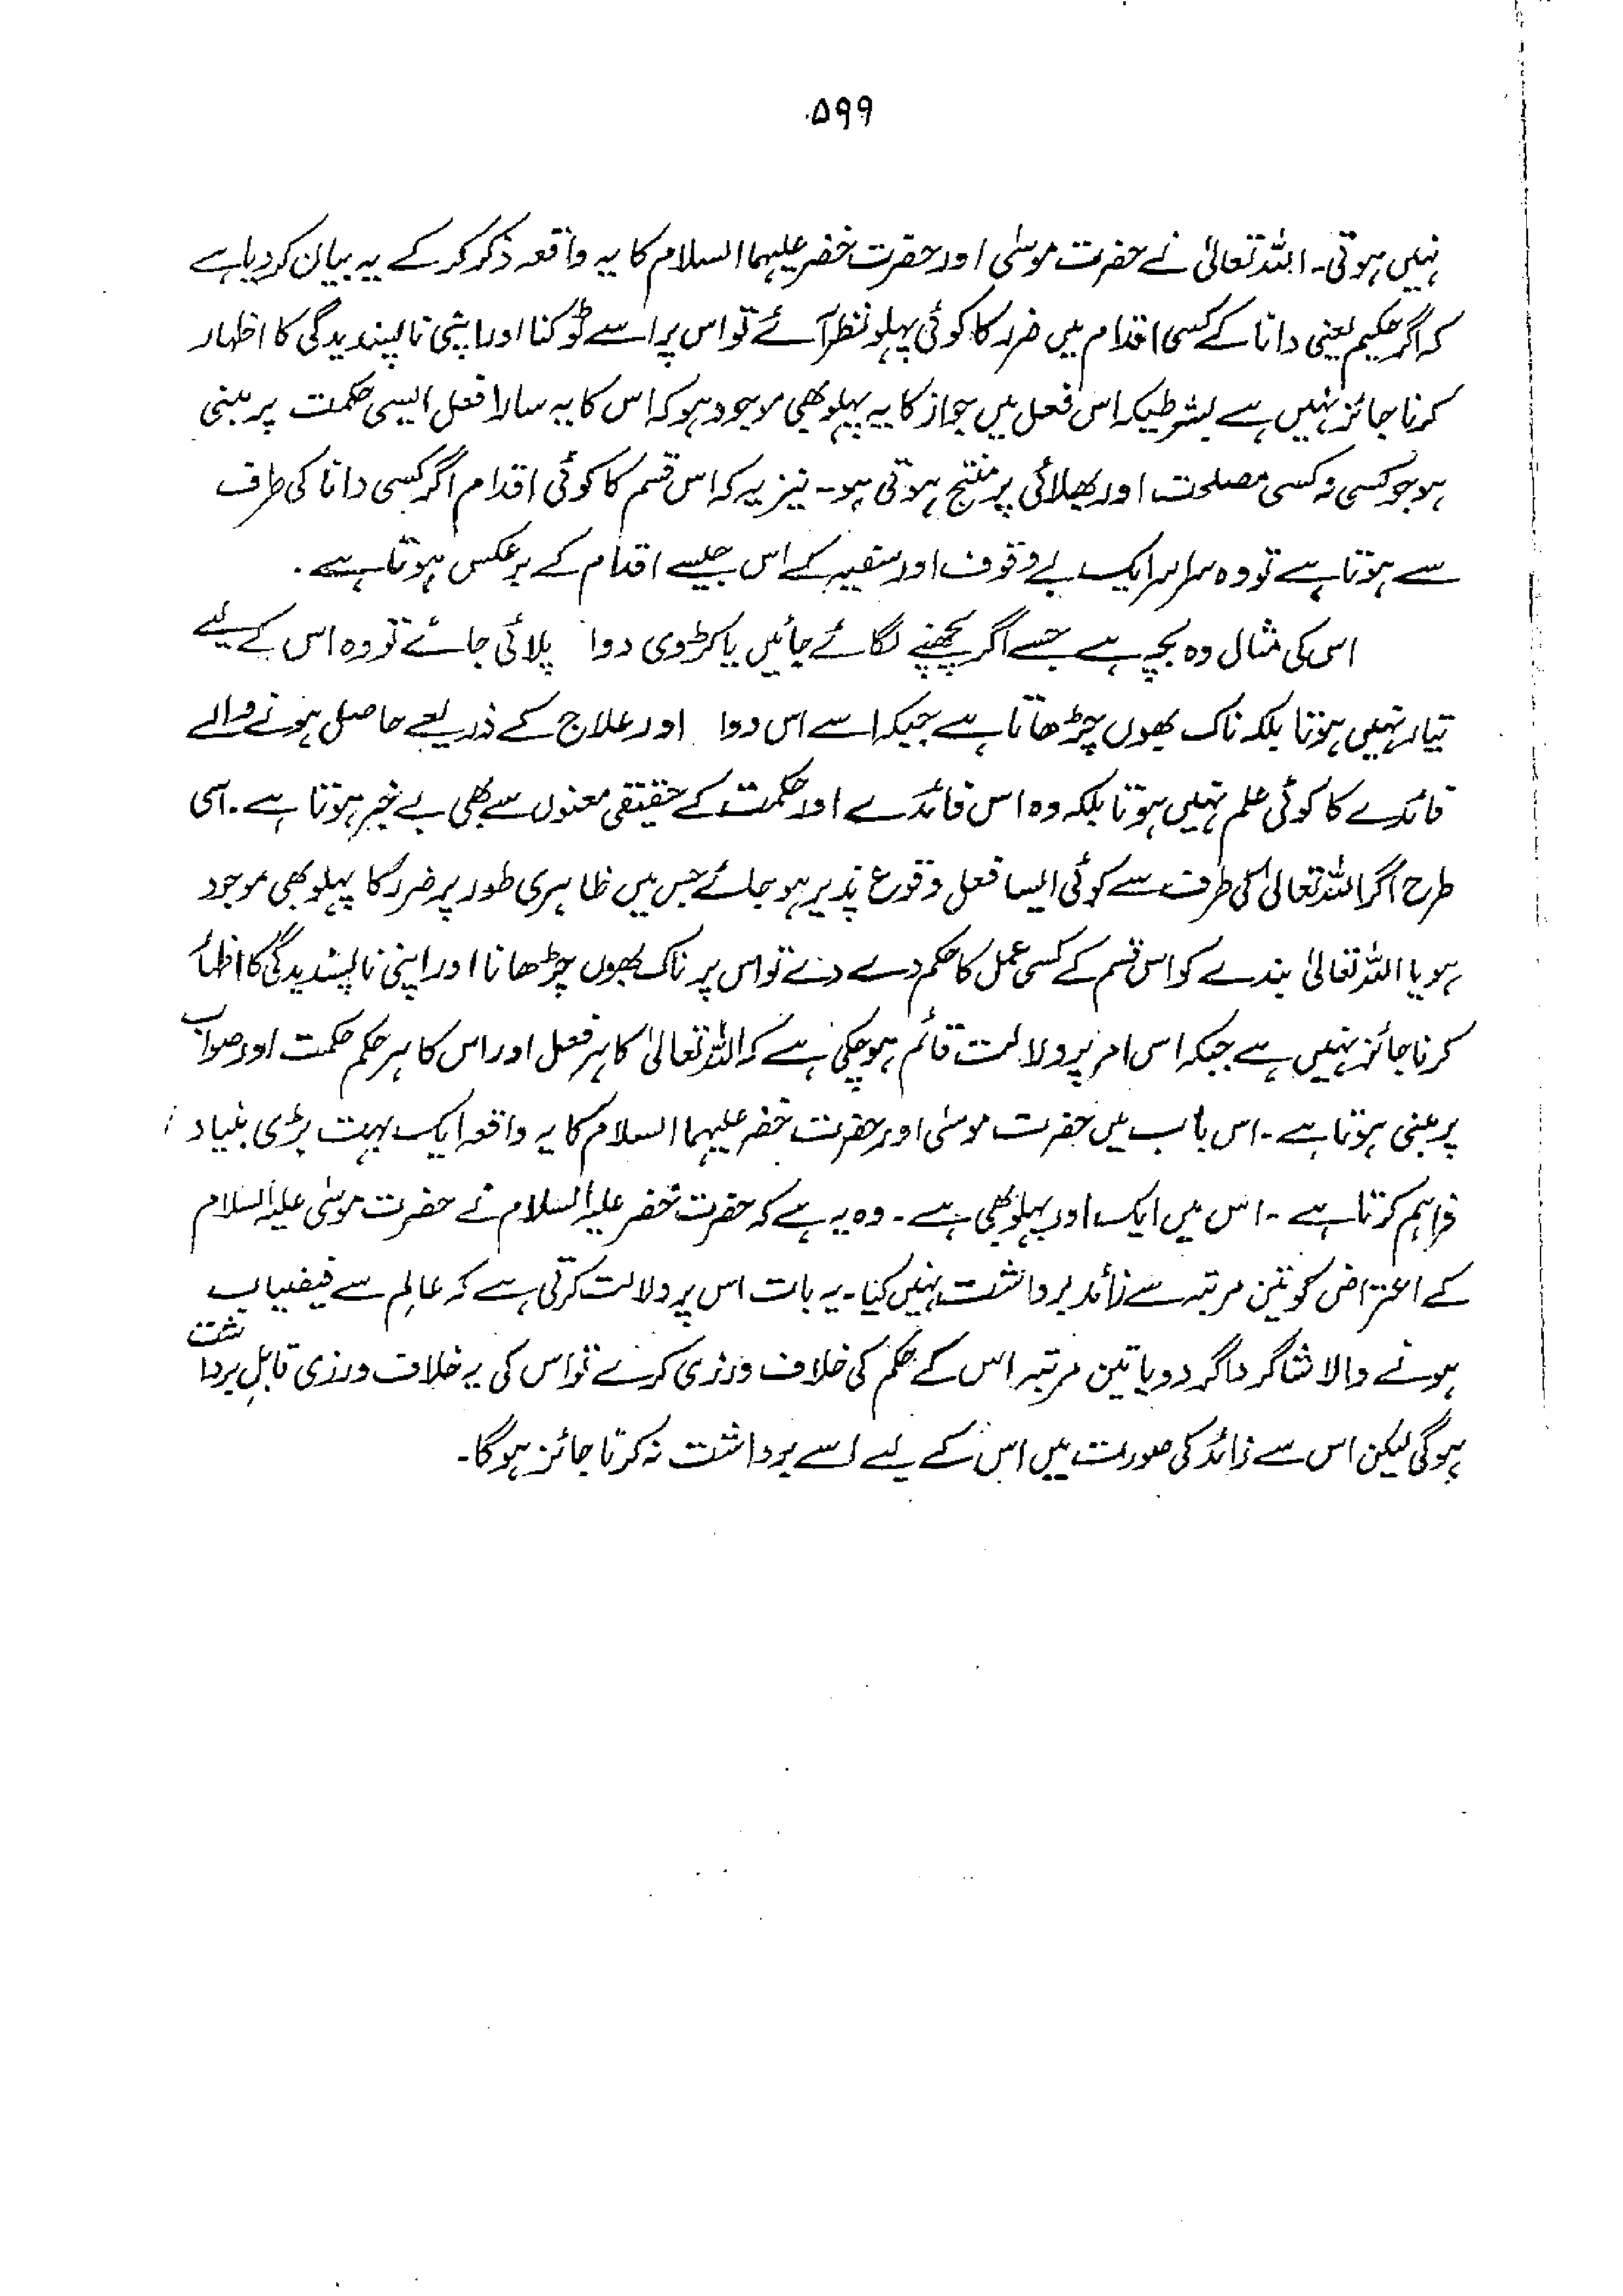 ۵۹۹
نہیں ہوتی۔ اللہ تعالیٰ نے حضرت موسیٰ اور حضرت خضر علیہما السلام کا یہ واقعہ ذکر کر کے یہ بیان کر دیا ہے
کہ اگر حکیم یعنی دانا کے کسی اقدام میں ضرر کا کوئی پہلو نظر آئے تو اس پر اسے ٹوکنا اور اپنی ناپسندیدگی کا اظہار
کرنا جائز نہیں ہے بشرطیکہ اس فعل میں جواز کا یہ پہلو بھی موجود ہو کہ اس کا یہ سارا فعل ایسی حکمت پر مبنی
ہو جو کسی نہ کسی مصلحت اور بھلائی پر منتج ہوتی ہو۔ نیز یہ کہ اس قسم کا کوئی اقدام اگر کسی دانا کی طرف
سے ہوتا ہے تو وہ سراسر ایک بے وقوف اور سفیہ کے اس جیسے اقدام کے برعکس ہوتا ہے۔
اس کی مثال وہ بچہ ہے جسے اگر پچھنے لگائے جائیں یا کڑوی دوا پلائی جائے تو وہ اس کے لیے
تیار نہیں ہوتا بلکہ ناک بھوں چڑھاتا ہے جبکہ اسے اس دوا اور علاج کے ذریعے حاصل ہونے والے
فائدے کا کوئی علم نہیں ہوتا بلکہ وہ اس فائدے اور حکمت کے حقیقی معنوں سے بھی بے خبر ہوتا ہے۔ اسی
طرح اگر اللہ تعالیٰ کی طرف سے کوئی ایسا فعل وقوع پذیر ہو جائے جس میں ظاہری طور پر ضرر کا پہلو بھی موجود
ہو یا اللہ تعالیٰ بندے کو اس قسم کے کسی عمل کا حکم دے دے تو اس پر ناک بھوں چڑھانا اور اپنی ناپسندیدگی کا اظہار
کرنا جائز نہیں ہے جبکہ اس امر پر دلالت قائم ہو چکی ہے کہ اللہ تعالیٰ کا ہر فعل اور اس کا ہر حکم حکمت اور صواب
پر مبنی ہوتا ہے۔ اس باب میں حضرت موسیٰ اور حضرت خضر علیہما السلام کا یہ واقعہ ایک بہت بڑی بنیاد
فراہم کرتا ہے۔ اس میں ایک اور پہلو بھی ہے۔ وہ یہ ہے کہ حضرت خضر علیہ السلام نے حضرت موسیٰ علیہ السلام
کے اعتراض کو تین مرتبہ سے زائد برداشت نہیں کیا۔ یہ بات اس پر دلالت کرتی ہے کہ عالِم سے فیضیاب
ہونے والا شاگرد اگر دو یا تین مرتبہ اس کے حکم کی خلاف ورزی کرے تو اس کی یہ خلاف ورزی قابلِ برداشت
ہوگی لیکن اس سے زائد کی صورت میں اس کے لیے اسے برداشت نہ کرنا جائز ہوگا۔